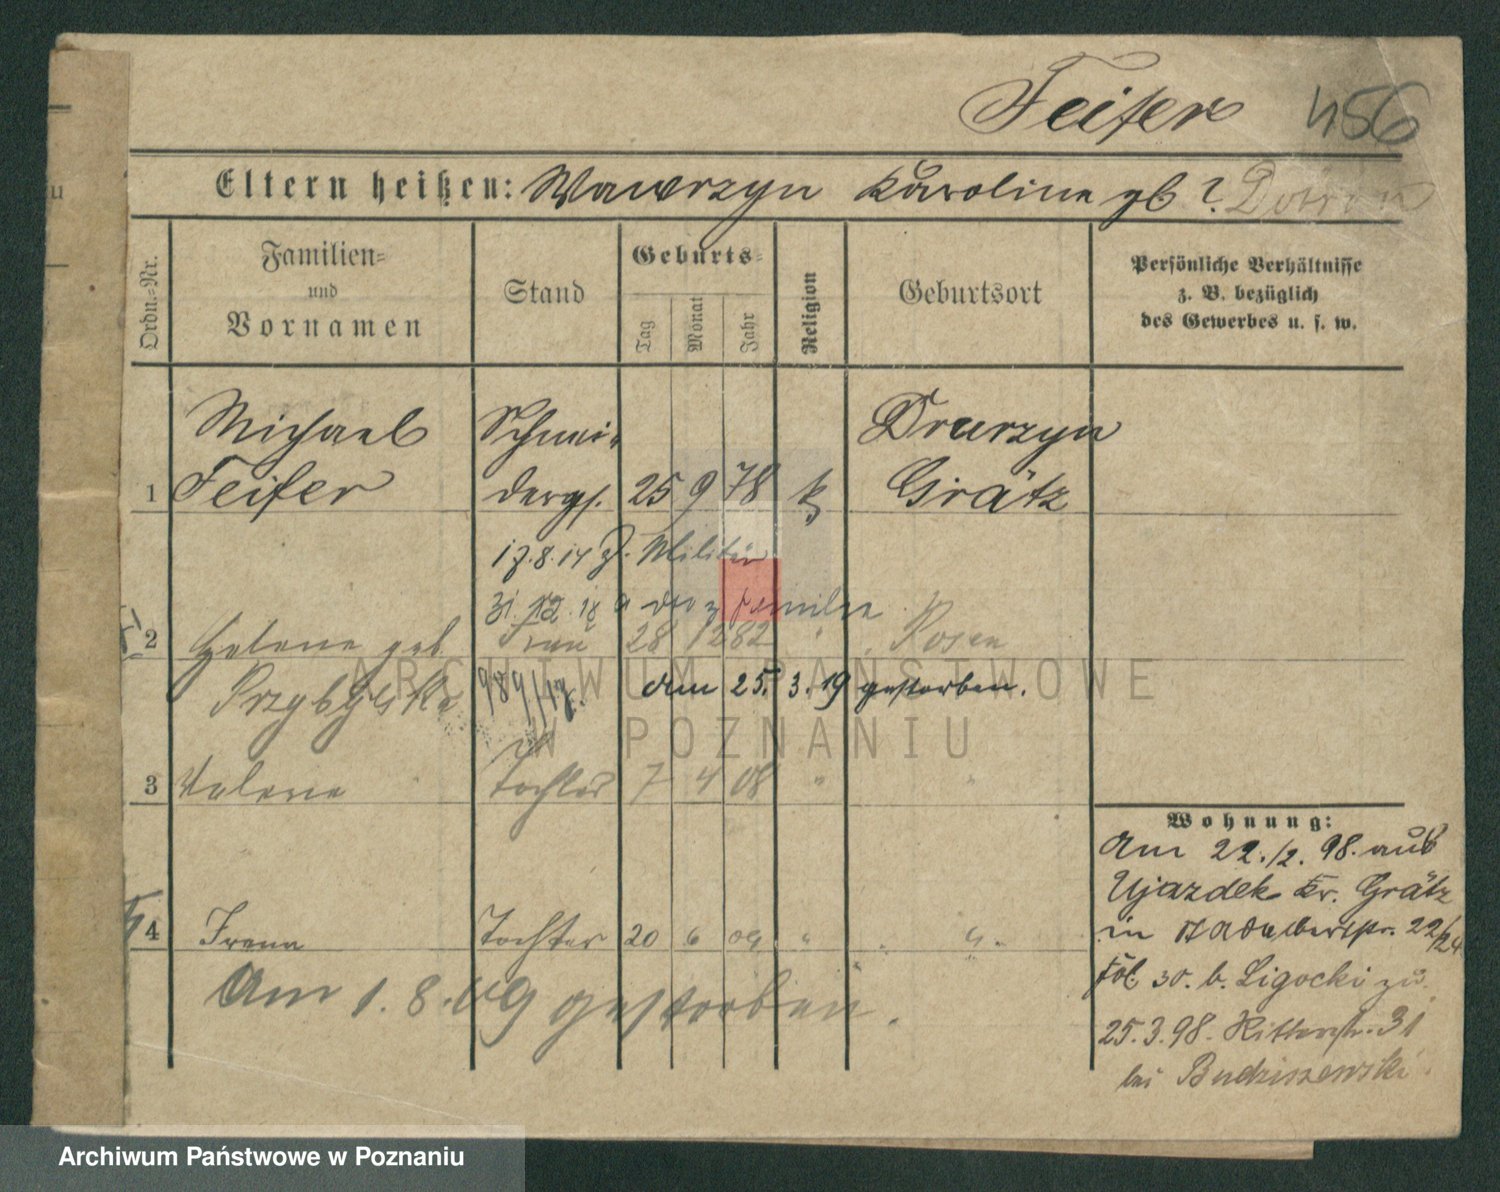 Feifer 456
Eltern heißen: Wawrzyn Karoline gb ?
Ordn.-Nr.
Familien-
und
Vornamen
Stand
Geburts-
Tag
Monat
Jahr
Religion
Geburtsort
Persönliche Verhältnisse
z. B. bezüglich
des Gewerbes u. s. w.
Michael Schnei- Druzyn
1 Feifer dergs. 25 9 78 k Grätz
17.8.14 z. Militär
31. 12. 18 a d z Familie
2 Helene geb. Frau 28 12 82 " Posen
Przybylska 989/19. am 25. 3. 19 gestorben.
3 Valerie Tochter 7 4 08 " "
4 Irena Tochter 20 6 09 " "
Am 1.8.09 gestorben.
Wohnung:
Am 22./2. 98. aus
Ujazdek Kr. Grätz
in Adalbertstr. 22/24
30. b. Ligocki zu.
25.3.98. Ritterstr. 31
bei Budziszewski.
ARCHIWUM PAŃSTWOWE
W POZNANIU
Archiwum Państwowe w Poznaniu